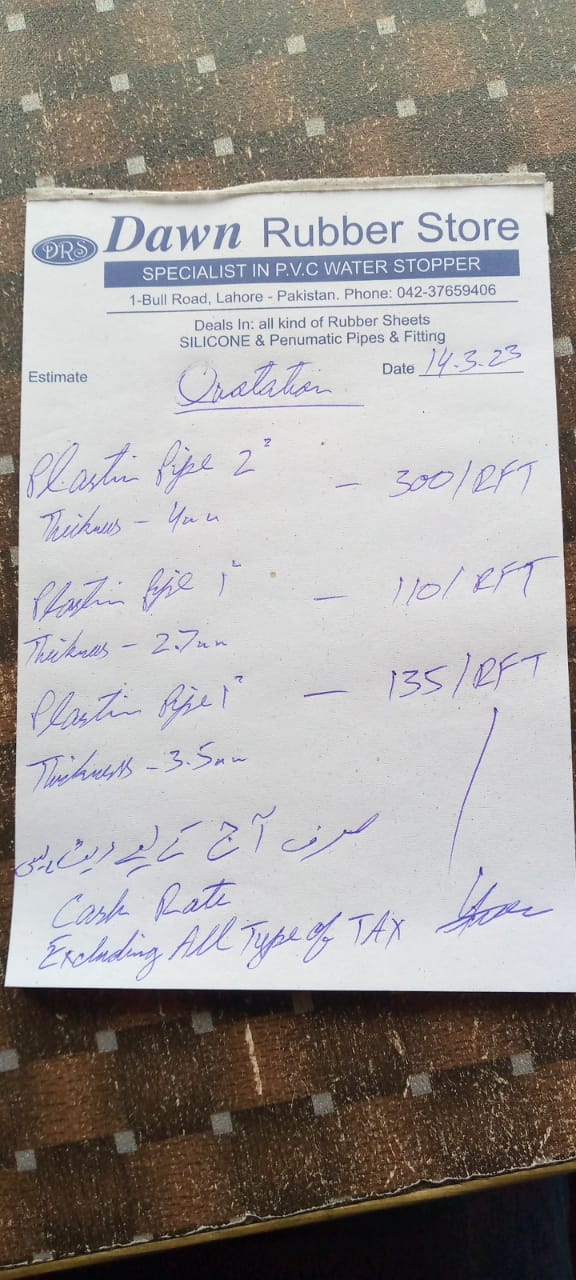 DRS
Dawn Rubber Store
SPECIALIST IN P.V.C WATER STOPPER
1-Bull Road, Lahore - Pakistan. Phone: 042-37659406
Deals In: all kind of Rubber Sheets
SILICONE & Penumatic Pipes & Fitting
Estimate
Date 14.3.23
Quotation
Plastin Pipe 2" — 300/RFT
Thickness - 4mm
Plastin Pipe 1" — 110/RFT
Thickness - 2.7mm
Plastin Pipe 1" — 135/RFT
Thickness - 3.5mm
صرف آج کے لیے ریٹ ہیں
Cash Rate
Excluding All Type of TAX